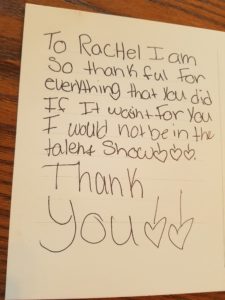 To Rachel I am
so thankful for
everything that you did
If It wasnt for you
I would not be in the
talent show♡♡♡.
Thank
you♡♡